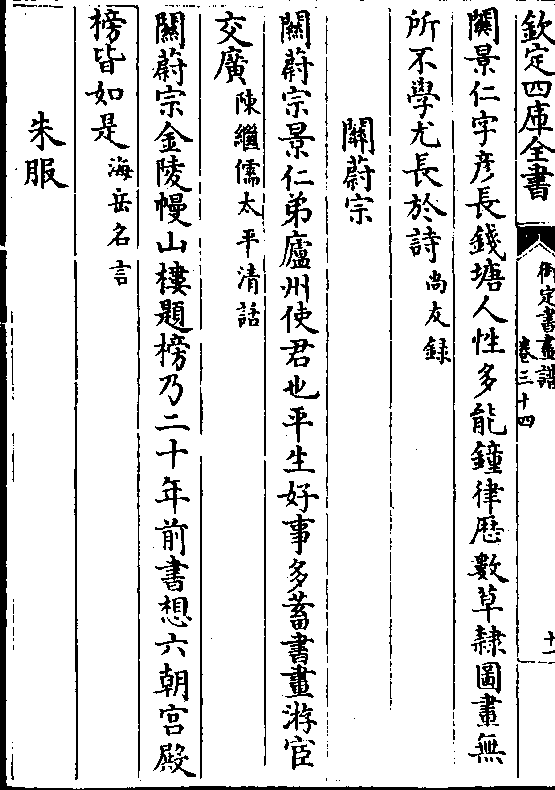 欽定四庫全書
御定書畫譜
卷三十四
十一
關景仁字彦長錢塘人性多能鐘律歴數草隷圖畫無
所不學尤長於詩尚友録
關蔚宗
關蔚宗景仁弟廬州使君也平生好事多蓄書畫游宦
交廣陳繼儒太平清話
關蔚宗金陵幔山樓題榜乃二十年前書想六朝宫殿
榜皆如是海岳名言
朱服